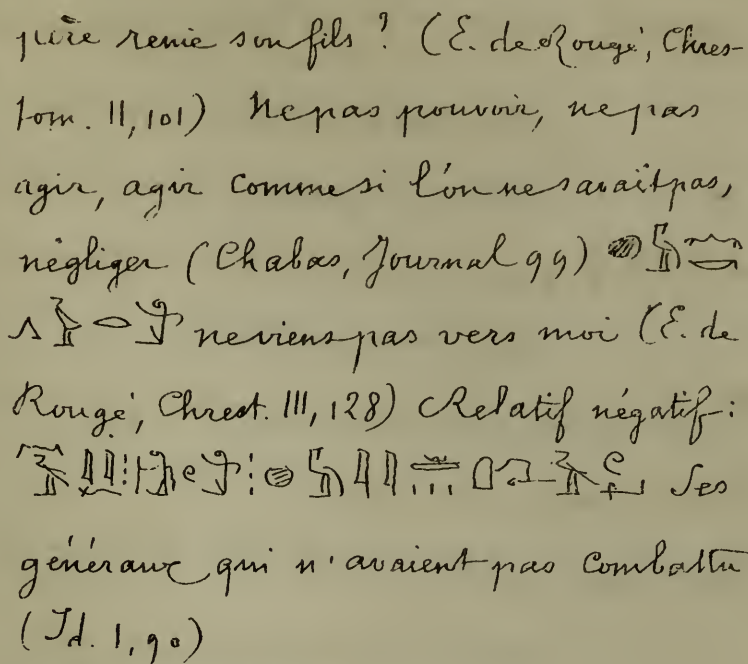 père renie son fils ? (E. de Rougé, Chres-
tom. II, 101) Ne pas pouvoir, ne pas
agir, agir comme si l'on ne savait pas,
négliger (Chabas, Journal 99)
ne viens pas vers moi (E. de
Rougé, Chrest. III, 128) Relatif négatif :
Ses
généraux qui n'avaient pas combattu
(Id. I, 90)